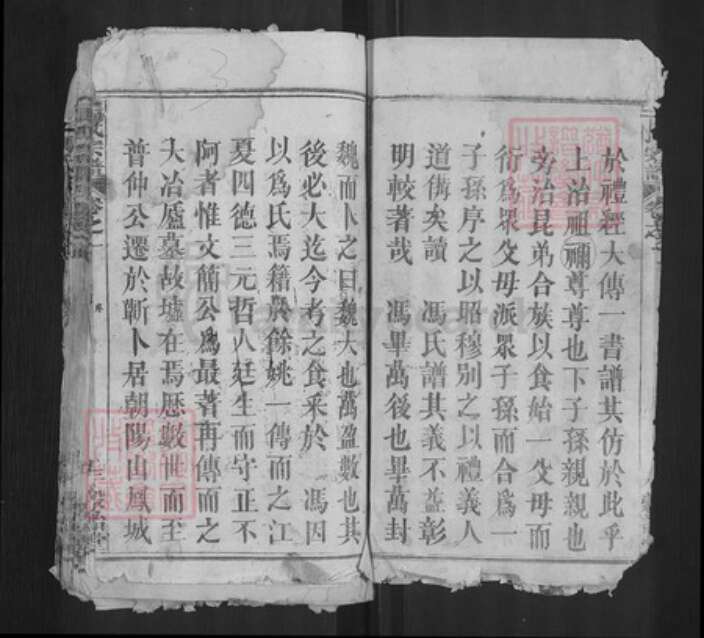 於禮經大傳一書譜其仿於此乎
上治祖禰尊尊也下子孫親親也
旁治昆弟合族以食始一父母而
衍爲眾父母派眾子孫而合爲一
子孫序之以昭穆別之以禮義人
道儁矣讀　馮氏譜其義不益彰
明較著哉　馮畢萬後也畢萬封
魏而卜之曰魏大也萬盈數也其
後必大迄今考之食采於　馮因
以爲氏焉籍於餘姚一傳而之江
夏四德三元哲人廷生而守正不
阿者惟文簡公爲最著再傳而之
大冶廬墓故墟在焉歷數世而至
普仲公遷於蘄卜居朝陽山鳳城
序